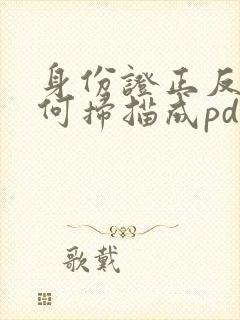 身份證正反
何掃描成pd
歌戴